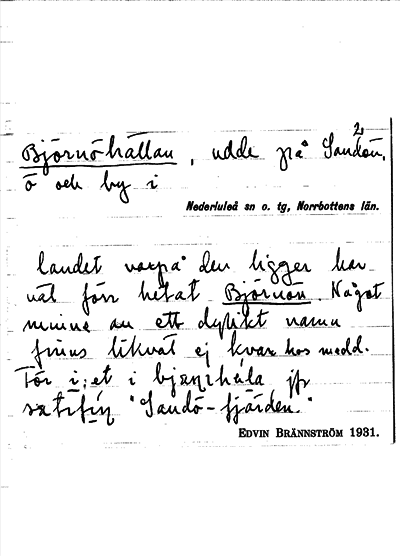 2
Björnöhällan, udde på Sandön,
ö och by i
Nederluleå sn o. tg, Norrbottens län.
landet varpå den ligger har
väl förr hetat Björnön. Något
minne av ett dylikt namn
finns likväl ej kvar hos medd.
För i; et i jfr
"Sandö-fjärden."
EDVIN BRÄNNSTRÖM 1931.